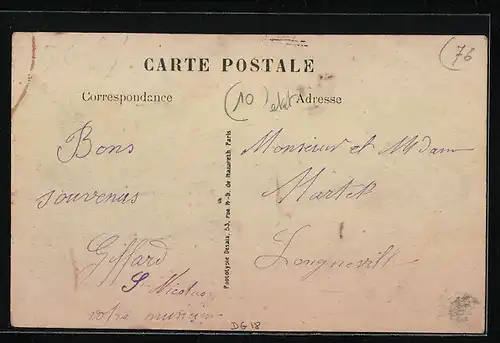 (76
CARTE POSTALE
Correspondance
(10) etat
Adresse
Bons
souvenirs
Giffard
St Nicolas
votre
Phototypie Desaix, 53, rue N-D. de Nazareth Paris
Monsieur et Mdam
Martel
Longueville
DG18